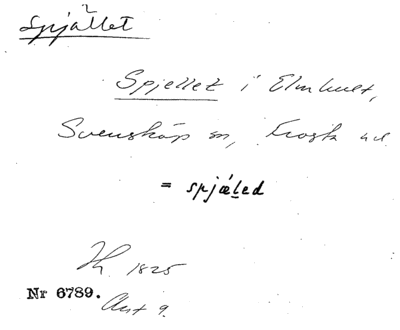 Spjället
Spjellet i Elmhult,
Svensköp sn, Frosta hd
= spjæled
1825
Nr 6789.
Akt 9.